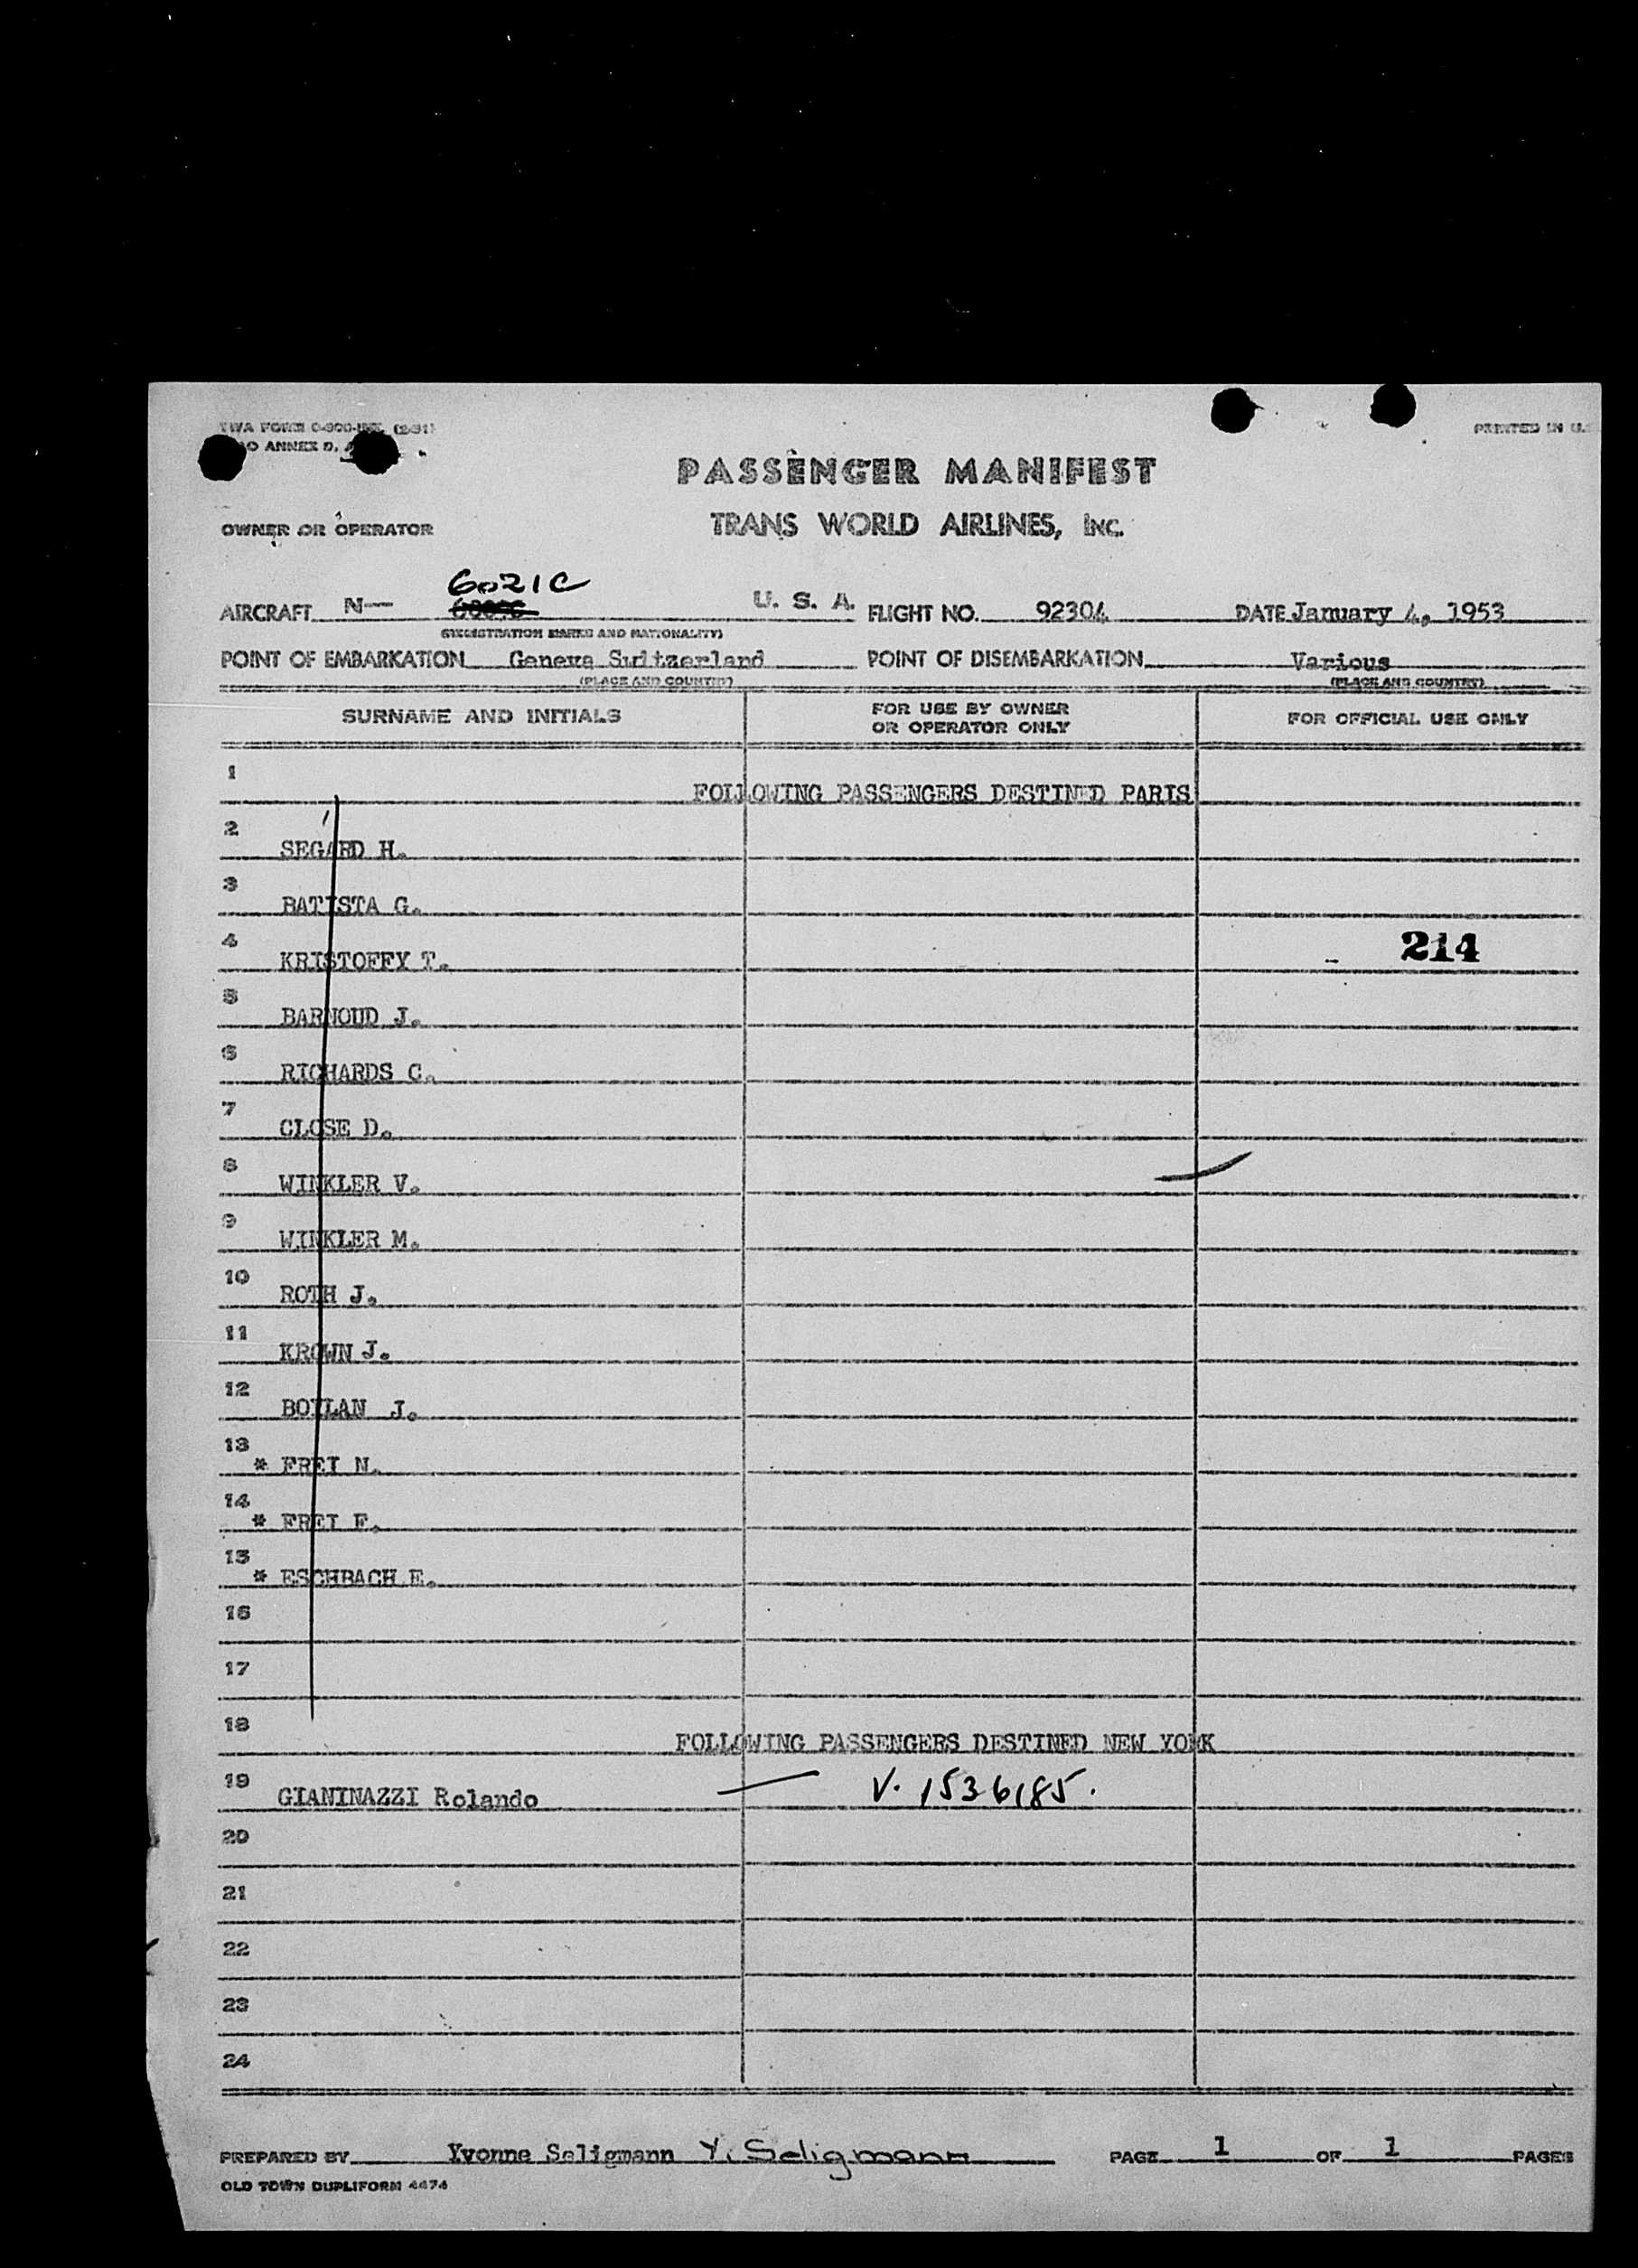 TWA FORM (2-51)
ANNEX 9,
PRINTED IN U.
PASSENGER MANIFEST
OWNER OR OPERATOR TRANS WORLD AIRLINES, INC.
6021C
AIRCRAFT N— U. S. A. FLIGHT NO. 92304 DATE January 4, 1953
(REGISTRATION MARKS AND NATIONALITY)
POINT OF EMBARKATION Geneva Switzerland POINT OF DISEMBARKATION Various
(PLACE AND COUNTRY) (PLACE AND COUNTRY)
SURNAME AND INITIALS FOR USE BY OWNER OR OPERATOR ONLY FOR OFFICIAL USE ONLY
1 FOLLOWING PASSENGERS DESTINED PARIS
2 SEGARD H.
3 BATISTA G.
4 KRISTOFFY T. 214
5 BARNOUD J.
6 RICHARDS C.
7 CLOSE D.
8 WINKLER V.
9 WINKLER M.
10 ROTH J.
11 KROWN J.
12 BOYLAN J.
13 * FREI N.
14 * FREI F.
15 * ESCHBACH E.
16
17
18 FOLLOWING PASSENGERS DESTINED NEW YORK
19 GIANINAZZI Rolando — V. 1536185.
20
21
22
23
24
PREPARED BY Yvonne Seligmann Y. Seligmann PAGE 1 OF 1 PAGES
OLD TOWN DUPLIFORM 4474